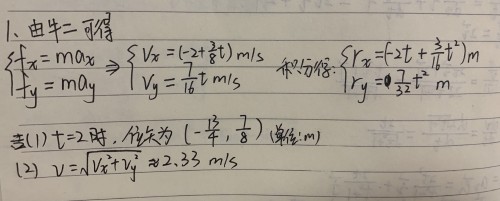 1、由牛二可得
{fx=max fy=may ⇒ {vx=(-2+3/8t) m/s vy=7/16t m/s 积分得: {rx=(-2t+3/16t²)m ry=7/32t² m
(1) t=2时, 位矢为 (-13/4, 7/8) (单位:m)
(2) v=√(vx²+vy²) ≈2.33 m/s